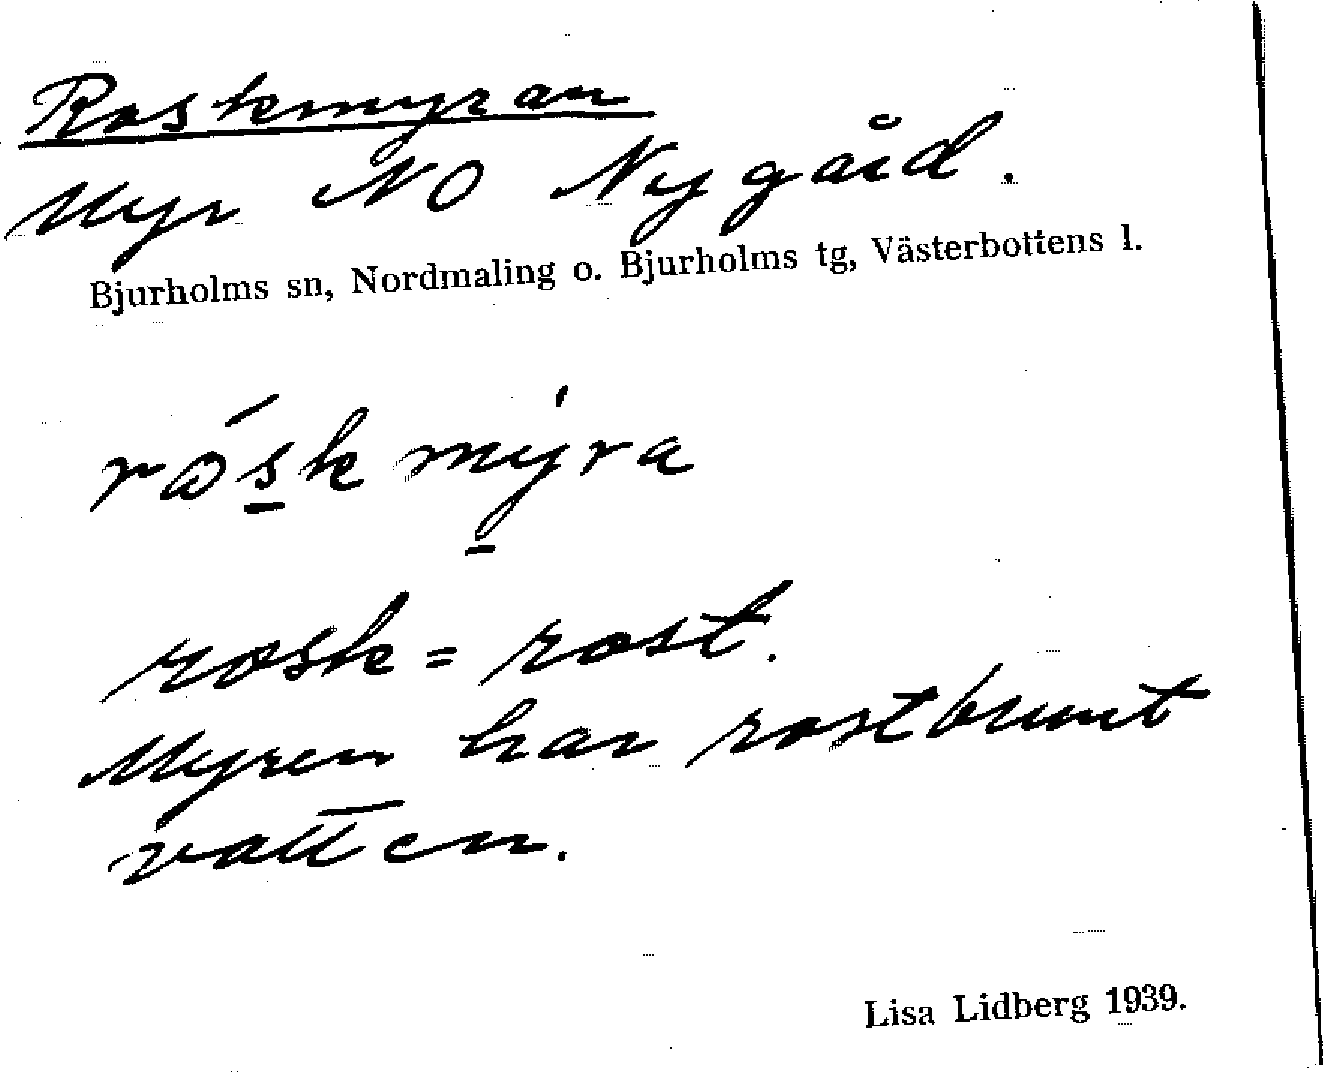 Roskmyran
Myr NO Nygård.
Bjurholms sn, Nordmaling o. Bjurholms tg, Västerbottens l.
rosk = rost.
Myren har rostbrunt
vatten.
Lisa Lidberg 1939.